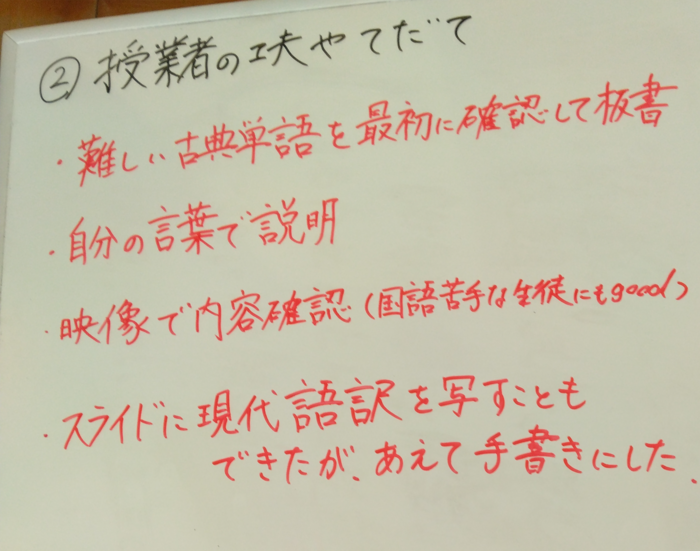 ② 授業者の工夫やてだて
・難しい古典単語を最初に確認して板書
・自分の言葉で説明
・映像で内容確認(国語苦手な生徒にもgood)
・スライドに現代語訳を写すことも
できたが、あえて手書きにした.